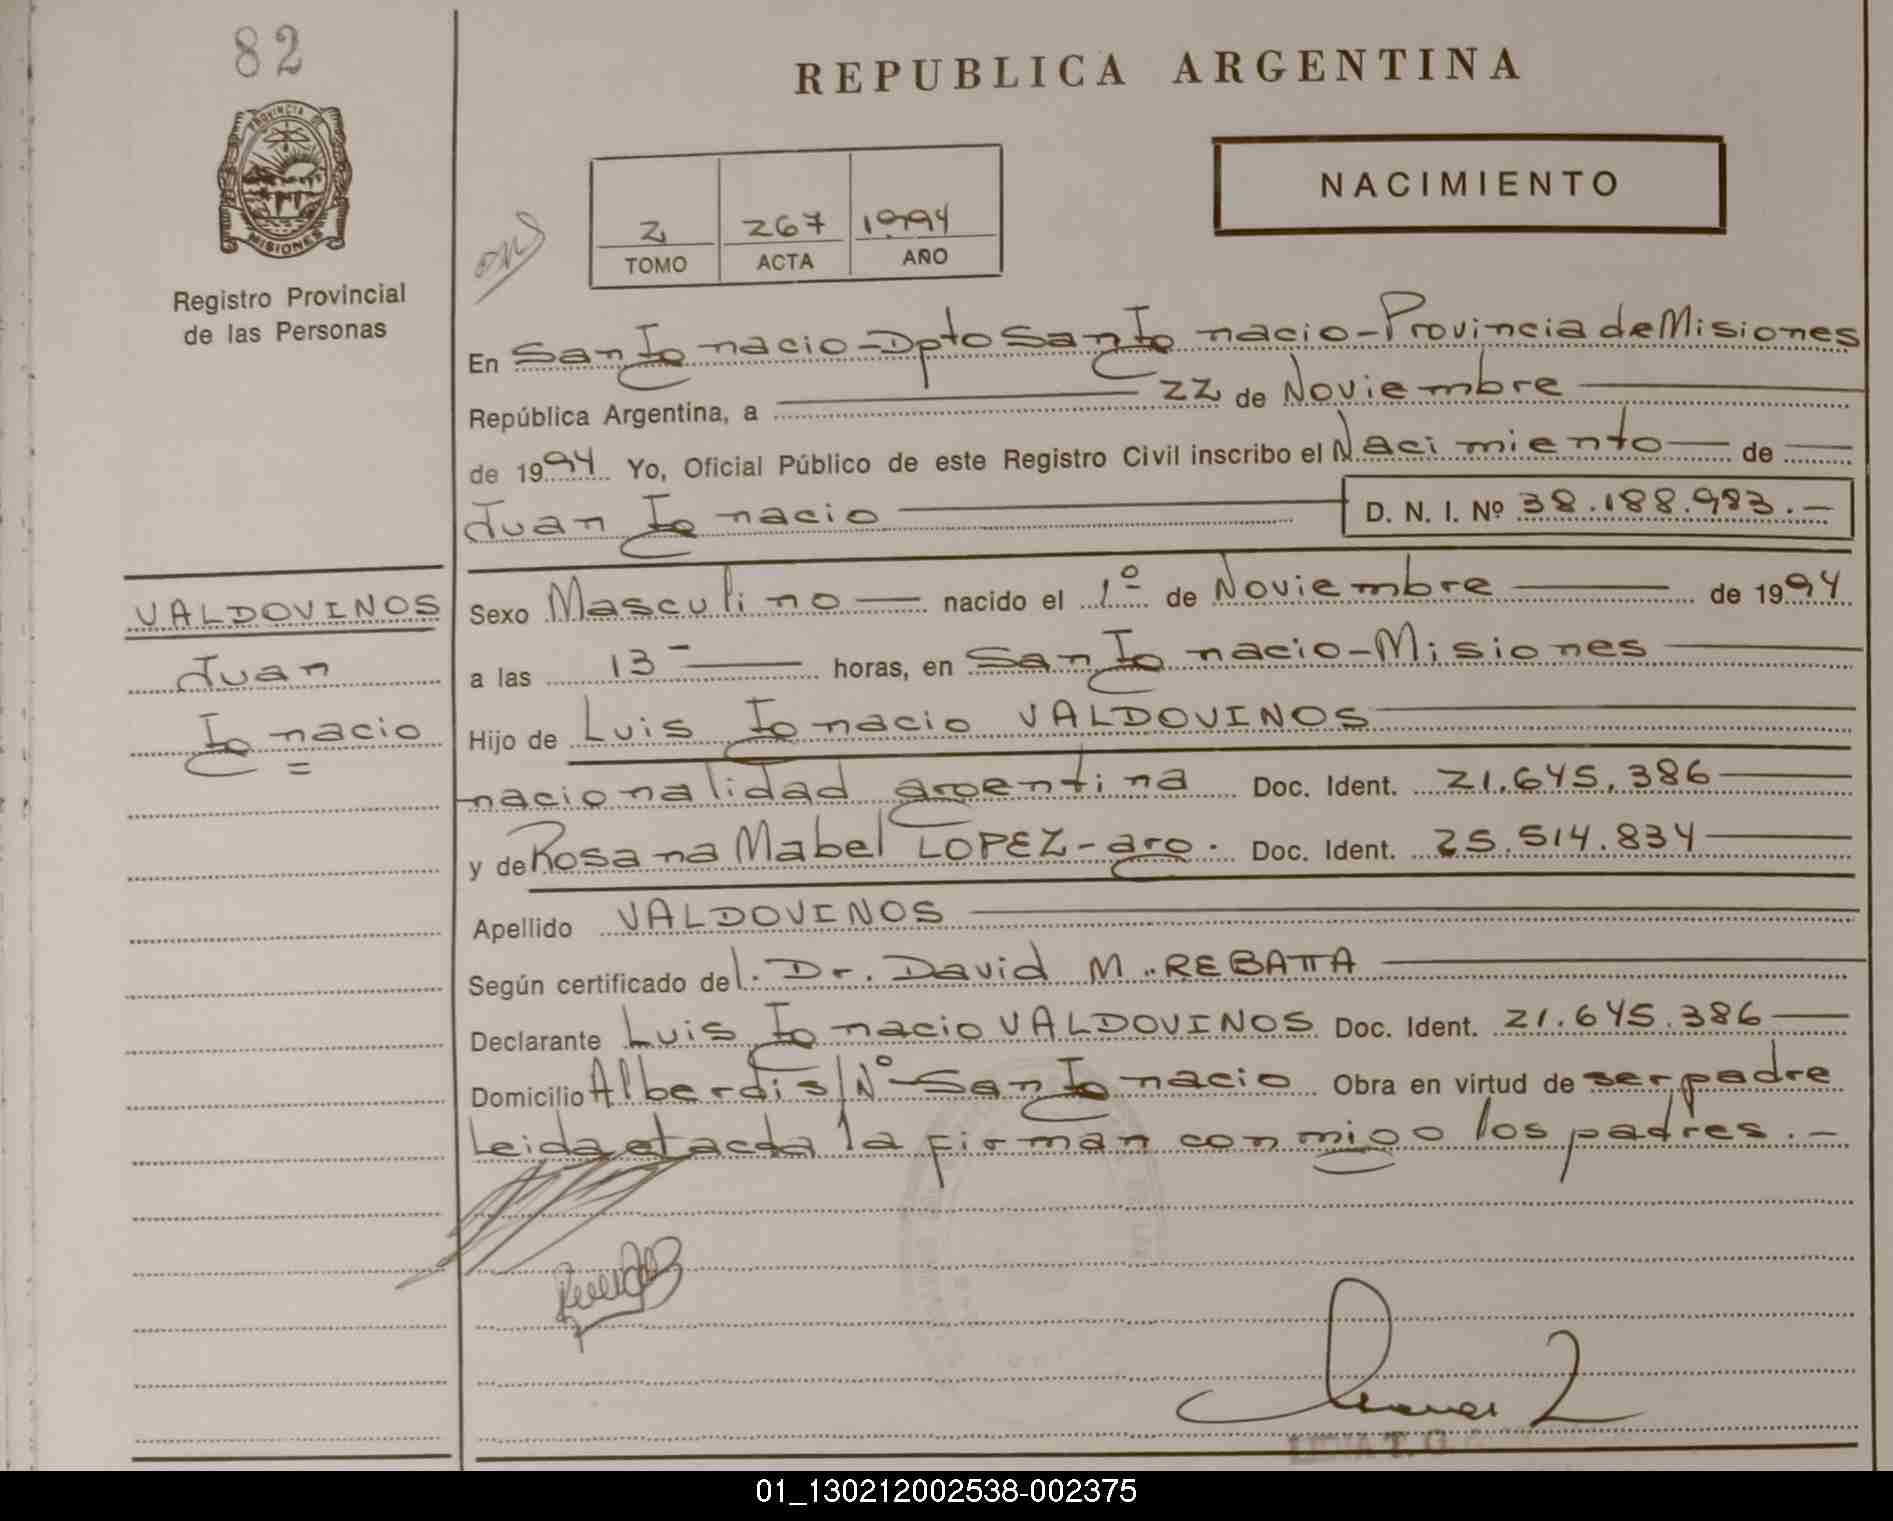 82
REPUBLICA ARGENTINA
PROVINCIA DE
MISIONES
Registro Provincial
de las Personas
2 267 1994
TOMO ACTA AÑO
NACIMIENTO
En San Ignacio - Dpto San Ignacio - Provincia de Misiones
República Argentina, a 22 de Noviembre
de 1994 Yo, Oficial Público de este Registro Civil inscribo el Nacimiento de
Juan Ignacio D. N. I. Nº 38.188.983.-
VALDOVINOS
Juan
Ignacio
Sexo Masculino nacido el 1º de Noviembre de 1994
a las 13 horas, en San Ignacio - Misiones
Hijo de Luis Ignacio VALDOVINOS
nacionalidad argentina Doc. Ident. 21.645.386
y de Rosana Mabel LOPEZ - arg. Doc. Ident. 25.514.834
Apellido VALDOVINOS
Según certificado del. Dr. David M. REBATTA
Declarante Luis Ignacio VALDOVINOS Doc. Ident. 21.645.386
Domicilio Alberdi s/Nº - San Ignacio Obra en virtud de ser padre
Leida el acta la firman conmigo los padres.-
01_130212002538-002375